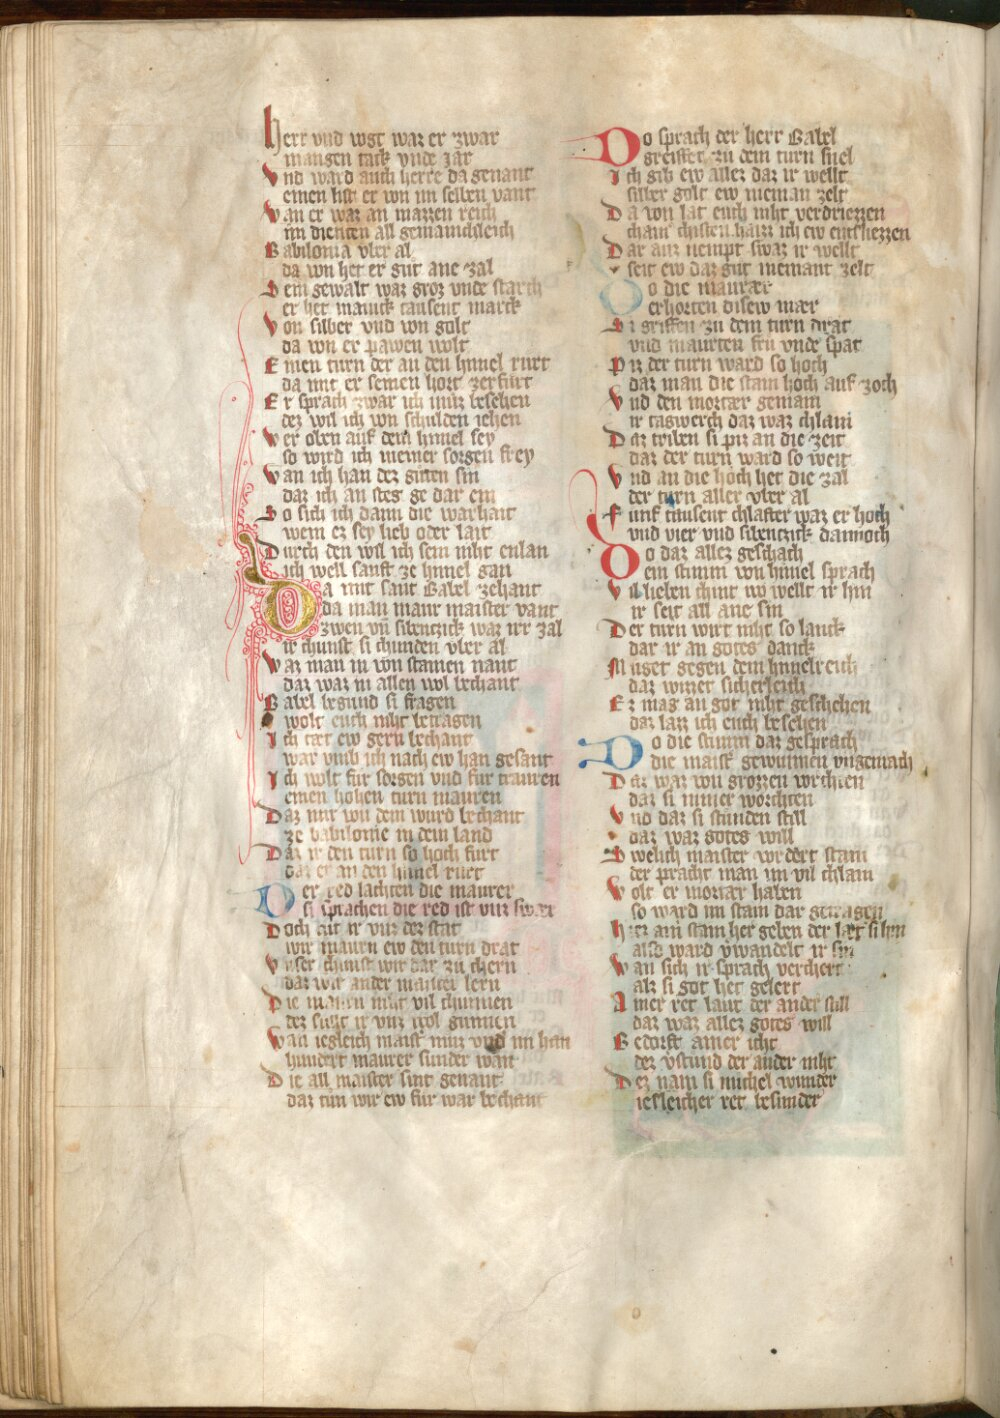 Herr vnd wgt waz er zwar
mangen tack vnde Jar
Vnd ward auch herre da genant
einen list er von im selben vant
Wan er waz an mazzen reich
im dienten all gemainchleich
Babilonia vber al
da von het er gut ane zal
Sein gewalt waz groz vnde starch
er het manick tausent marck
Von silber vnd von golt
da von er pawen wolt
Einen turn der an den himel rurt
da mit er seinen hort zerfurt
Er sprach zwar ich muz besehen
dez wil ich von schulden iehen
Wer oben auf dem himel sey
so wird ich meiner sorgen frey
Wan ich han dez guten sin
daz ich an steg ge dar ein
So sich ich dann die warhait
wem ez sey lieb oder lait
Durch den wil ich sein niht enlan
ich well sanft ze himel gan
Da mit sant Babel zehant
da man maur maister vant
zwen vn sibentzick waz irr zal
ir chunst si chunden vber al
Waz man in von stainen nant
daz waz in allen wol bechant
Babel begund si fragen
wolt euch niht betragen
Ich tæt ew gern bechant
war vmb ich nach ew han gesant
Ich wolt fur sorgen vnd fur trauren
einen hohen turn mauren
Daz mir von dem wurd bechant
ze babilonie in dem land
Daz ir den turn so hoch furt
daz er an den himel ruert
Der red lachten die maurer
si sprachen die red ist vnz swær
Doch tut ir vnz der stat
wir mauren ew den turn drat
Vnser chunst wir dar zu chern
daz wir ander maister lern
Die maurn niht vil chunnen
dez sullt ir vnz wol gunnen
Wan iegleich maist muz vnd im han
hundert maurer sunder wan
Die all maister sint genant
daz tun wir ew fur war bechant
Do sprach der herr Babel
greiffet zu dem turn snel
Ich gib ew allez daz ir wellt
silber golt ew nieman zelt
Da von lat euch niht verdriezzen
chain chisten haizz ich ew entsliezzen
Dar auz nempt swaz ir wellt
seit ew daz gut niemant zelt
Do die maurær
erhorten disew mær
Si griffen zu dem turn drat
vnd maurten fru vnde spat
Piz der turn ward so hoch
daz man die stain hoch auf zoch
Vnd den mortær gemain
ir tagwerch daz waz chlain
Daz triben si piz an die zeit
daz der turn ward so weit
Vnd an die hoch het die zal
der turn aller vber al
Funf tausent chlafter waz er hoch
vnd vier vnd sibentzick dannoch
Do daz allez geschach
ein stimm von himel sprach
Vil lieben chint wo wellt ir hin
ir seit all ane sin
Der turn wirt niht so lanck
daz ir an gotes danck
Muget gegen dem himelreich
daz wizzet sicherleich
Ez mag an got niht geschehen
daz lazz ich euch besehen
Do die stimm daz gesprach
die maist gewunnen vngemach
Daz waz von grozzen vorchten
daz si nimer worchten
Vnd daz si stunden still
daz waz gotes will
Swelich maister vordert stain
der pracht man im vil chlain
Wolt er mortær haben
so ward im stain dar getragen
Hiez ain stain her geben der
also ward vwandelt ir sin
Wan sich ir sprach verchert
alz si got het gelert
Ainer ret laut der ander still
daz waz allez gotes will
Bedorft ainer icht
dez vstund der ander niht
Dez nam si michel wunder
iesleicher ret besunder